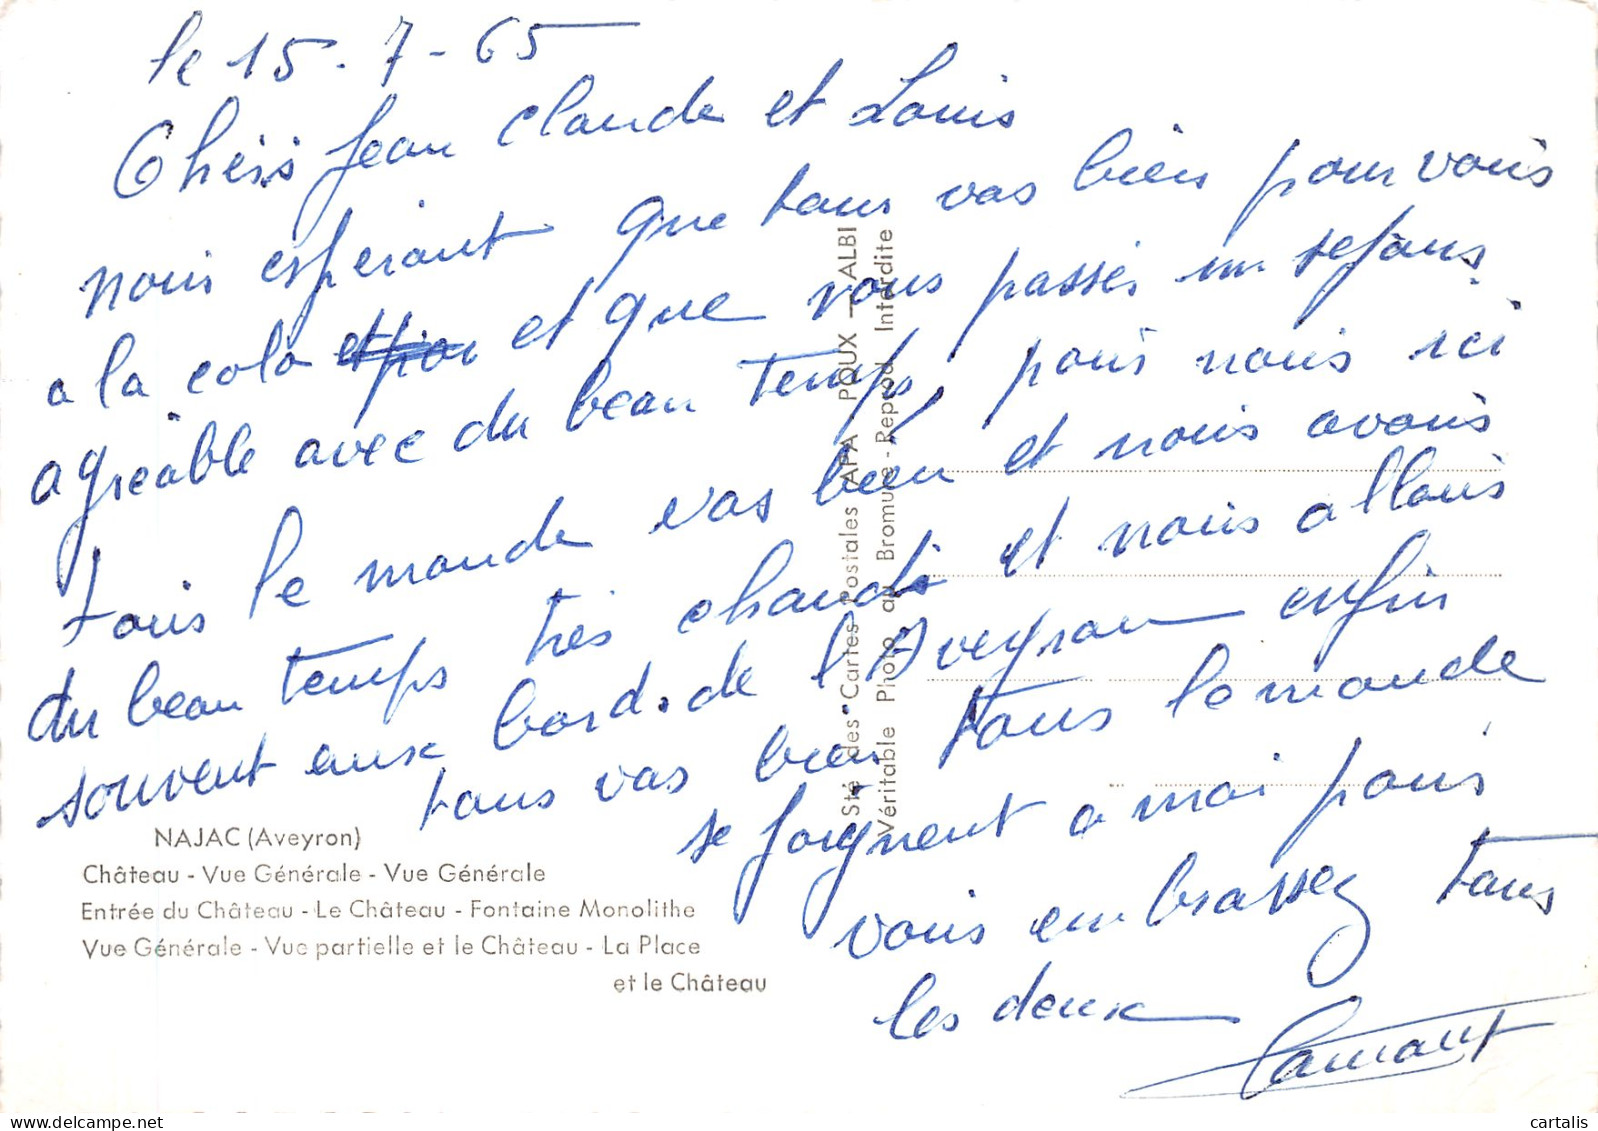 le 15-7-65
Chers Jean Claude et Louis
nous esperant que tous vas bien pour vous
a la colo et que vous passés un sejour
agréable avec du beau temps, pour nous ici
tous le monde vas bien et nous avons
du beau temps très chauds et nous allons
souvent aux bord de l'Aveyron enfin
tous vas bien tous le monde
se joignent a moi pour
vous embrasser tous
les deux
NAJAC (Aveyron)
Château - Vue Générale - Vue Générale
Entrée du Château - Le Château - Fontaine Monolithe
Vue Générale - Vue partielle et le Château - La Place
et le Château
Sté des Cartes Postales APA - POUX - ALBI
Véritable Photo au Bromure - Reprod. Interdite
cartalis